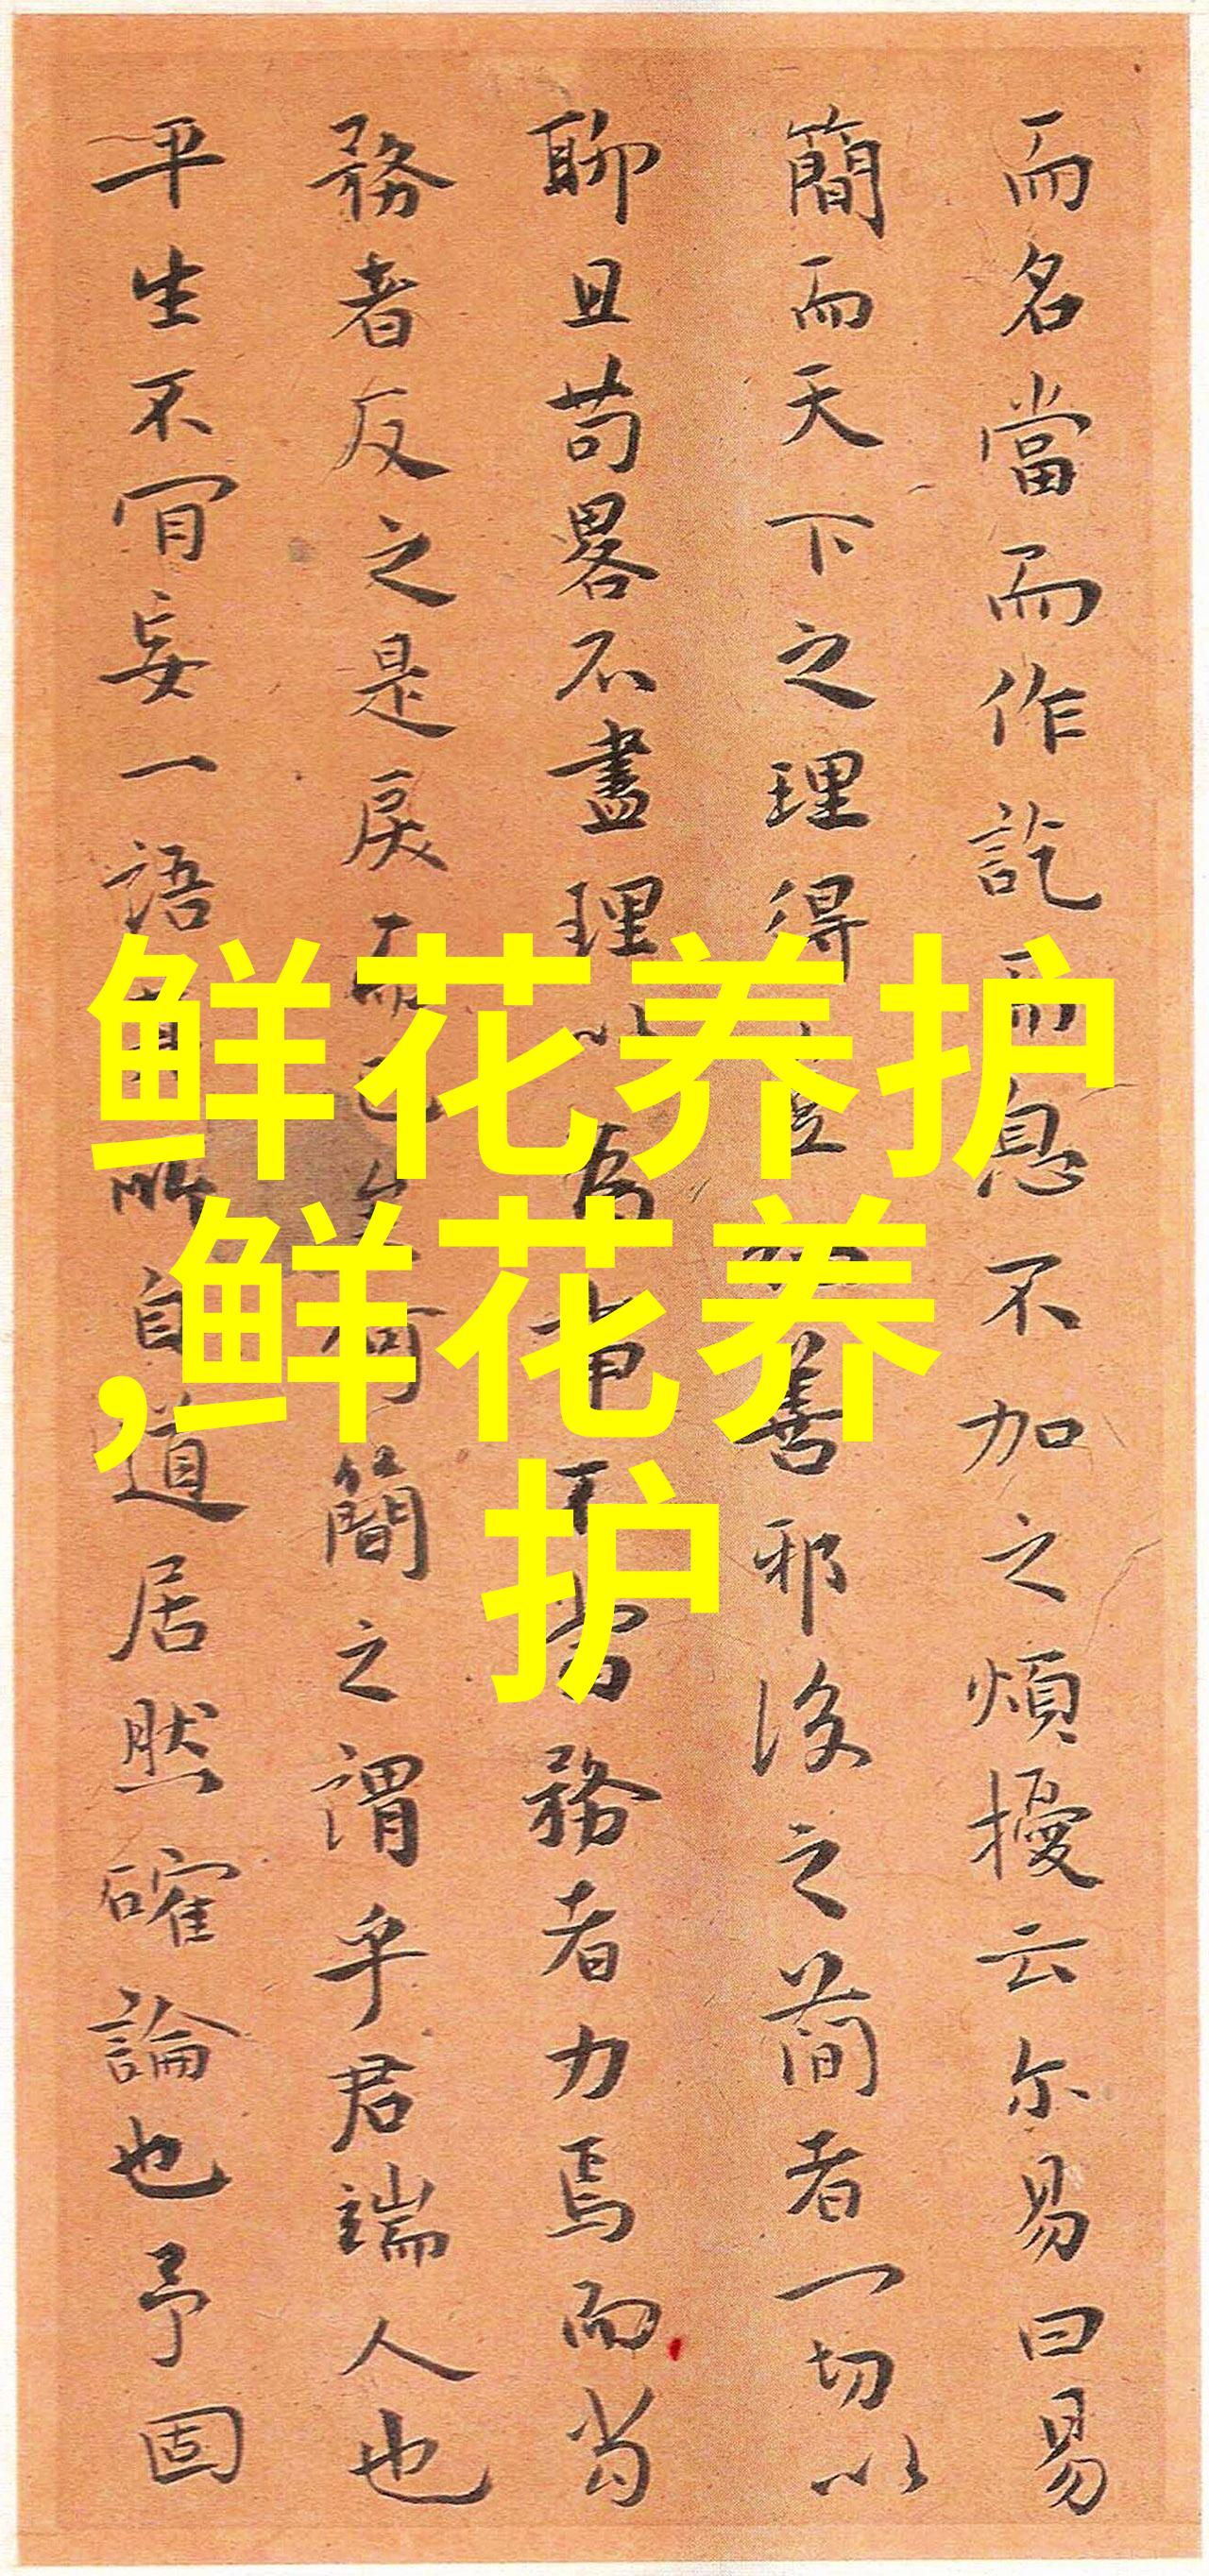 而名當而作訖而息不加之煩擾云尔易曰易
簡而天下之理得善邪後之簡者一切以
聊且苟畧不盡理為事不當務者力焉而當
務者反之是戾而已何簡之謂乎君端人也
平生不肎妄一語其所自道居然確論也予固
鲜花养护
,鲜花养
护